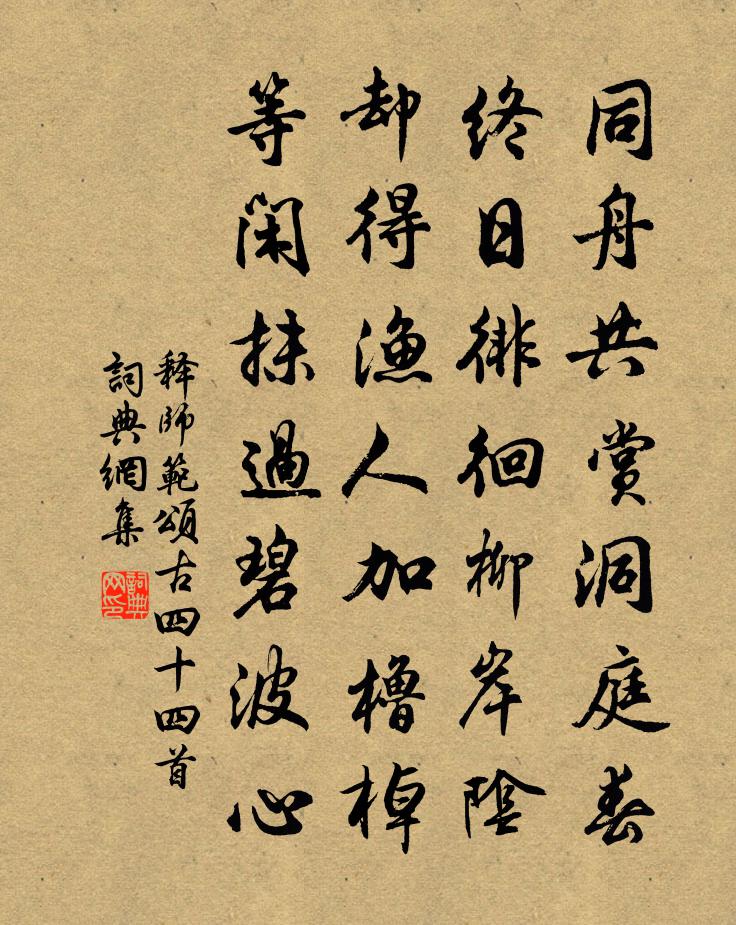 同舟共赏洞庭春
终日徘徊柳岸陰
却得漁人加櫓棹
等闲抹過碧波心
释師範頌古四十四首
詞典網集
詞典网印